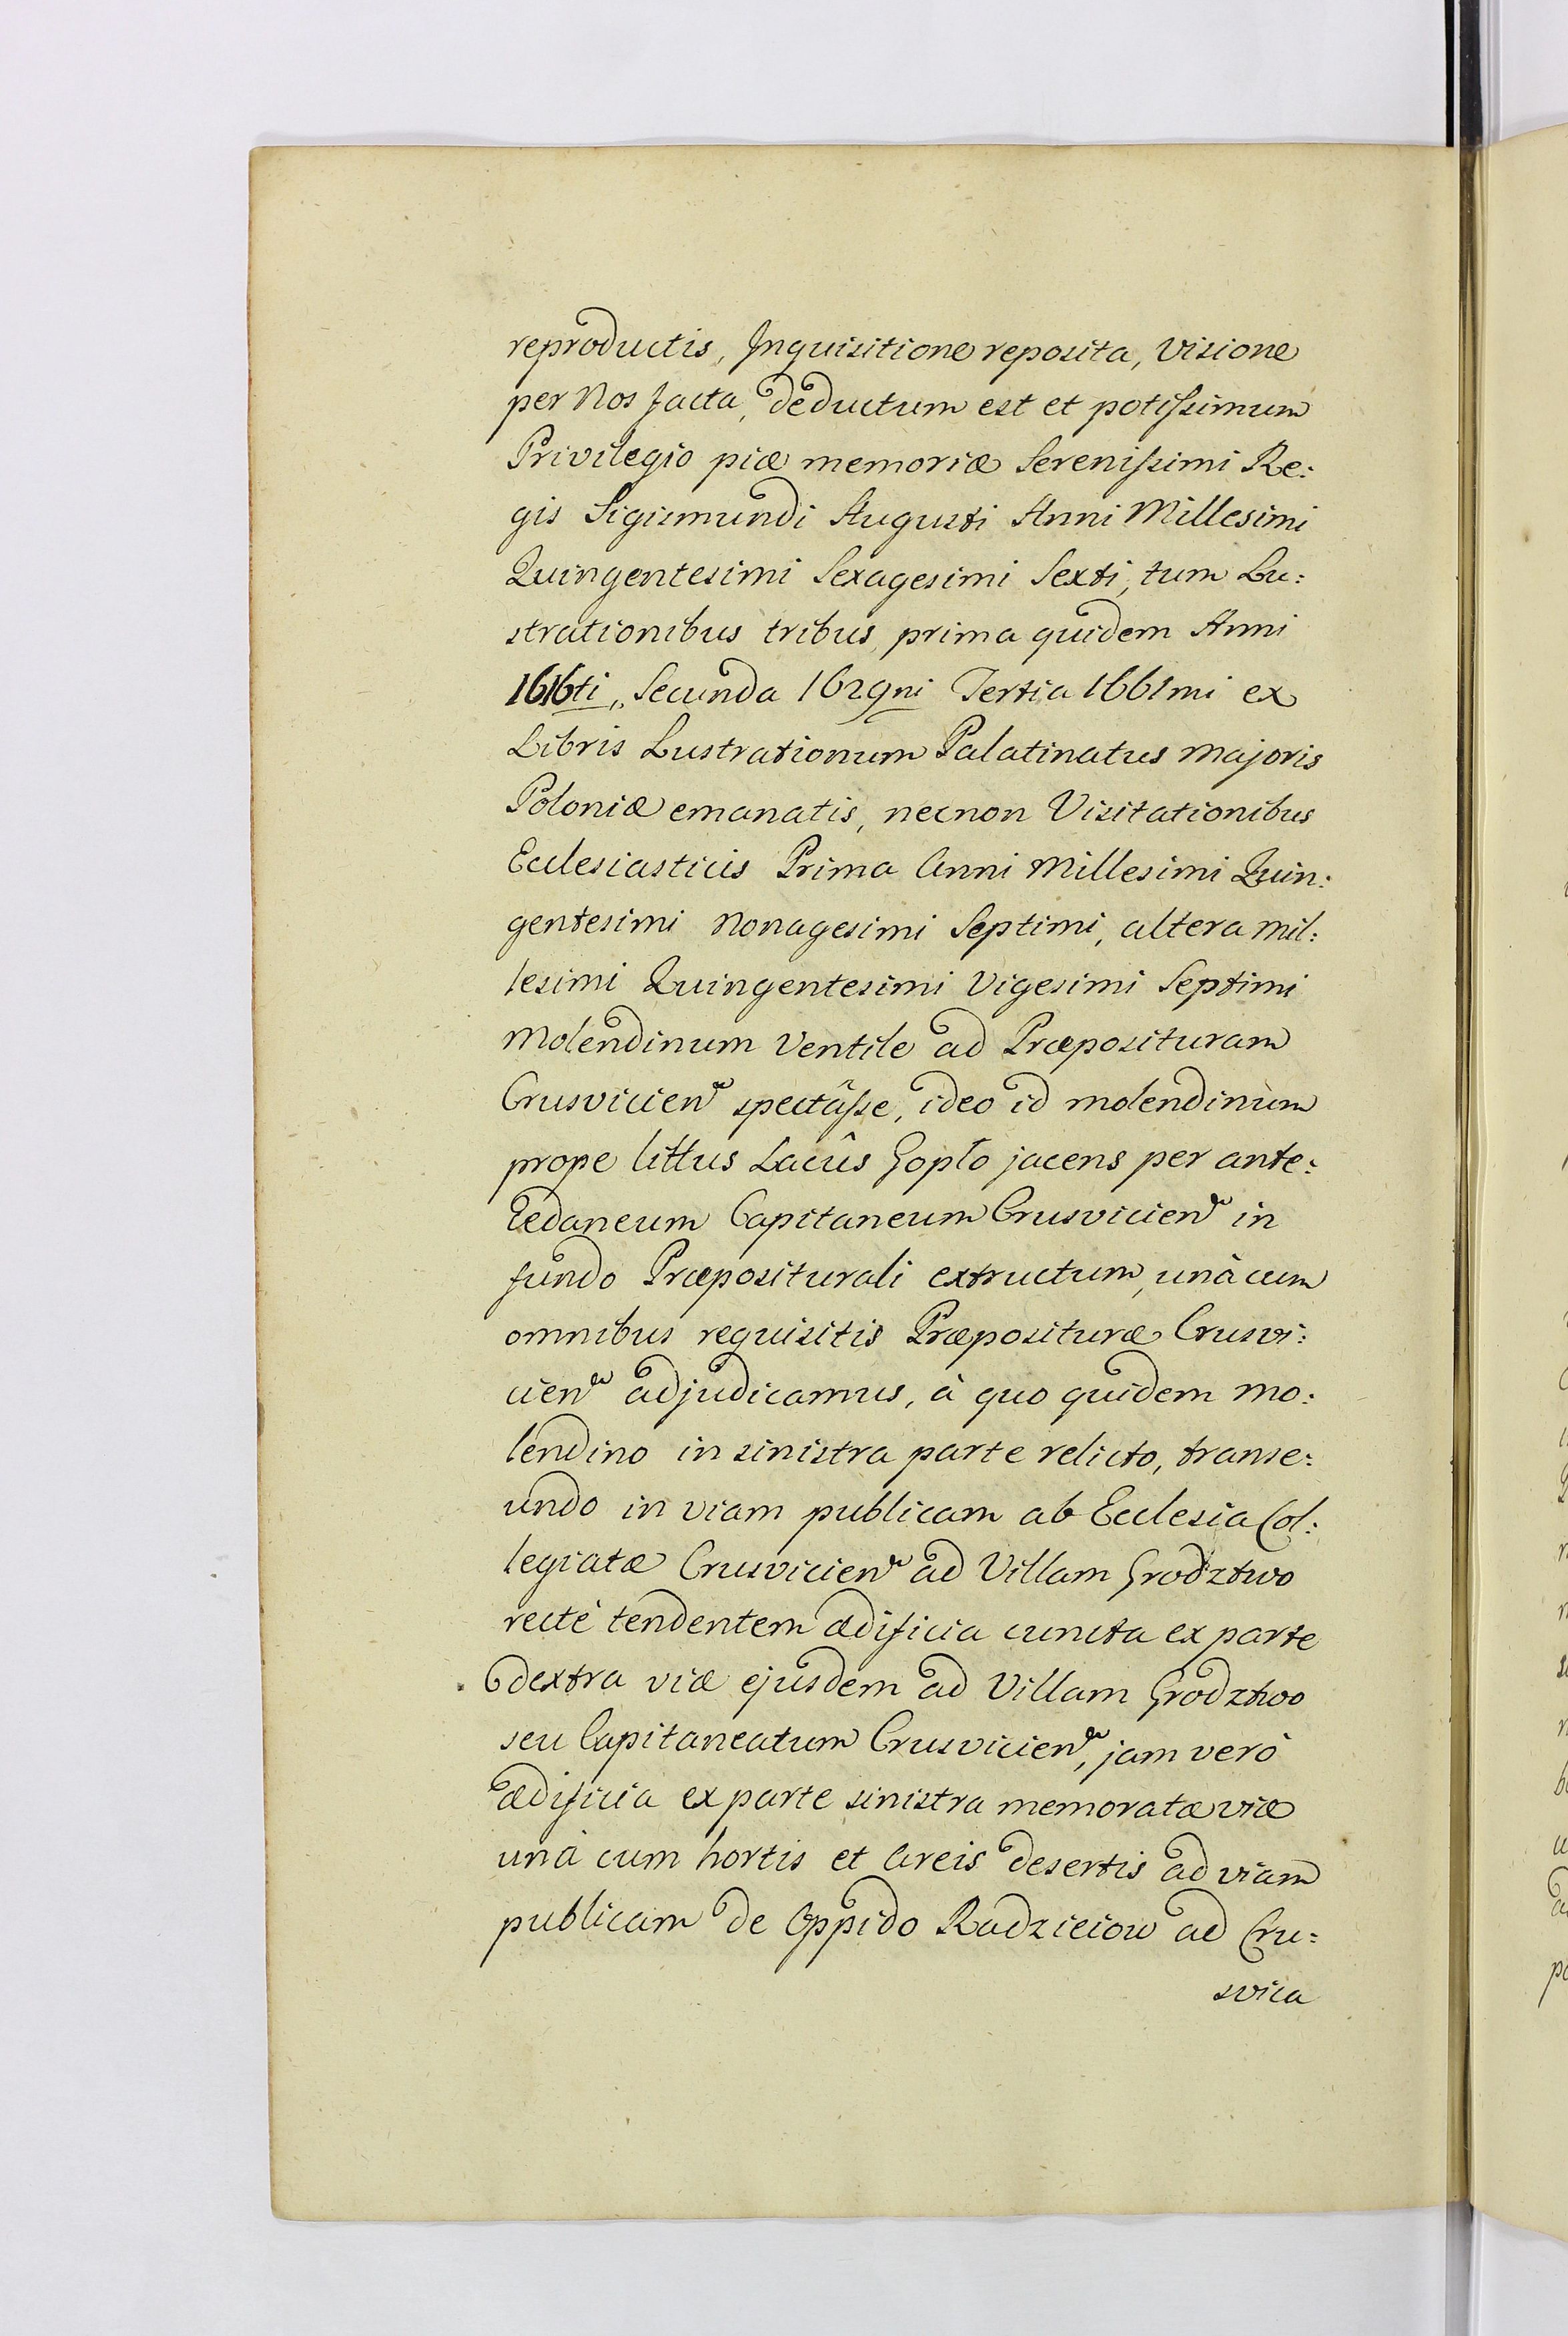 reproductis, Inquisitione reposita, Visione
per Nos facta, deductum est et potissimum
Privilegio piæ memoriæ Serenissimi Re:
gis Sigismundi Augusti Anni Millesimi
Quingentesimi Sexagesimi Sexti, tum Lu:
strationibus tribus, prima quidem Anni
1616ti, Secunda 1629ni Tertia 1661mi ex
Libris Lustrationum Palatinatus Majoris
Poloniæ emanatis, necnon Visitationibus
Ecclesiasticis Prima Anni Millesimi Quin:
gentesimi Nonagesimi Septimi, altera Mil:
lesimi Quingentesimi Vigesimi Septimi
Molendinum Ventile ad Præposituram
Crusvicien spectâsse, ideo id molendinum
prope littus Lacûs Gopło jacens per ante:
cedaneum Capitaneum Crusvicien in
fundo Præpositurali extructum, unà cum
omnibus requisitis Præposituræ Crusvi:
cien adjudicamus, à quo quidem mo:
lendino in sinistra parte relicto, transe:
undo in viam publicam ab Ecclesia Col:
legiatæ Crusvicien ad Villam Grodztwo
rectè tendentem ædificia cuncta ex parte
dextra viæ ejusdem ad Villam Grodztwo
seu Capitaneatum Crusvicien, jam verò
ædificia ex parte sinistra memoratæ viæ
unà cum hortis et Areis desertis ad viam
publicam de Oppido Radzieiow ad Cru:
svica